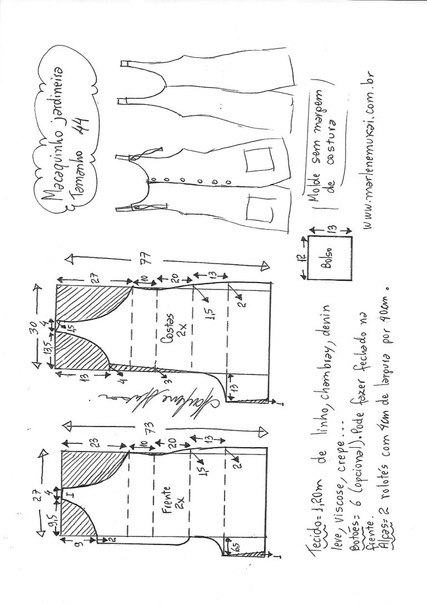 Macaquinho jardineira
Tamanho 44
Molde sem margem
de costura
www.marlenemukai.com.br
12
13
Bolso
77
27
10
20
13
30
4
1,5
13,5
13
4
3
13
1
1,5
2
Costas
2x
73
23
10
20
13
27
4
1
9,5
9
2
1,5
2
6,5
1
Frente
2x
Tecido=1,20m de linho, chambray, denin
leve, viscose, crepe...
Botões= 6 (opcional). Pode fazer fechado na
frente.
Alças=2 rolotês com 1cm de largura por 40cm.